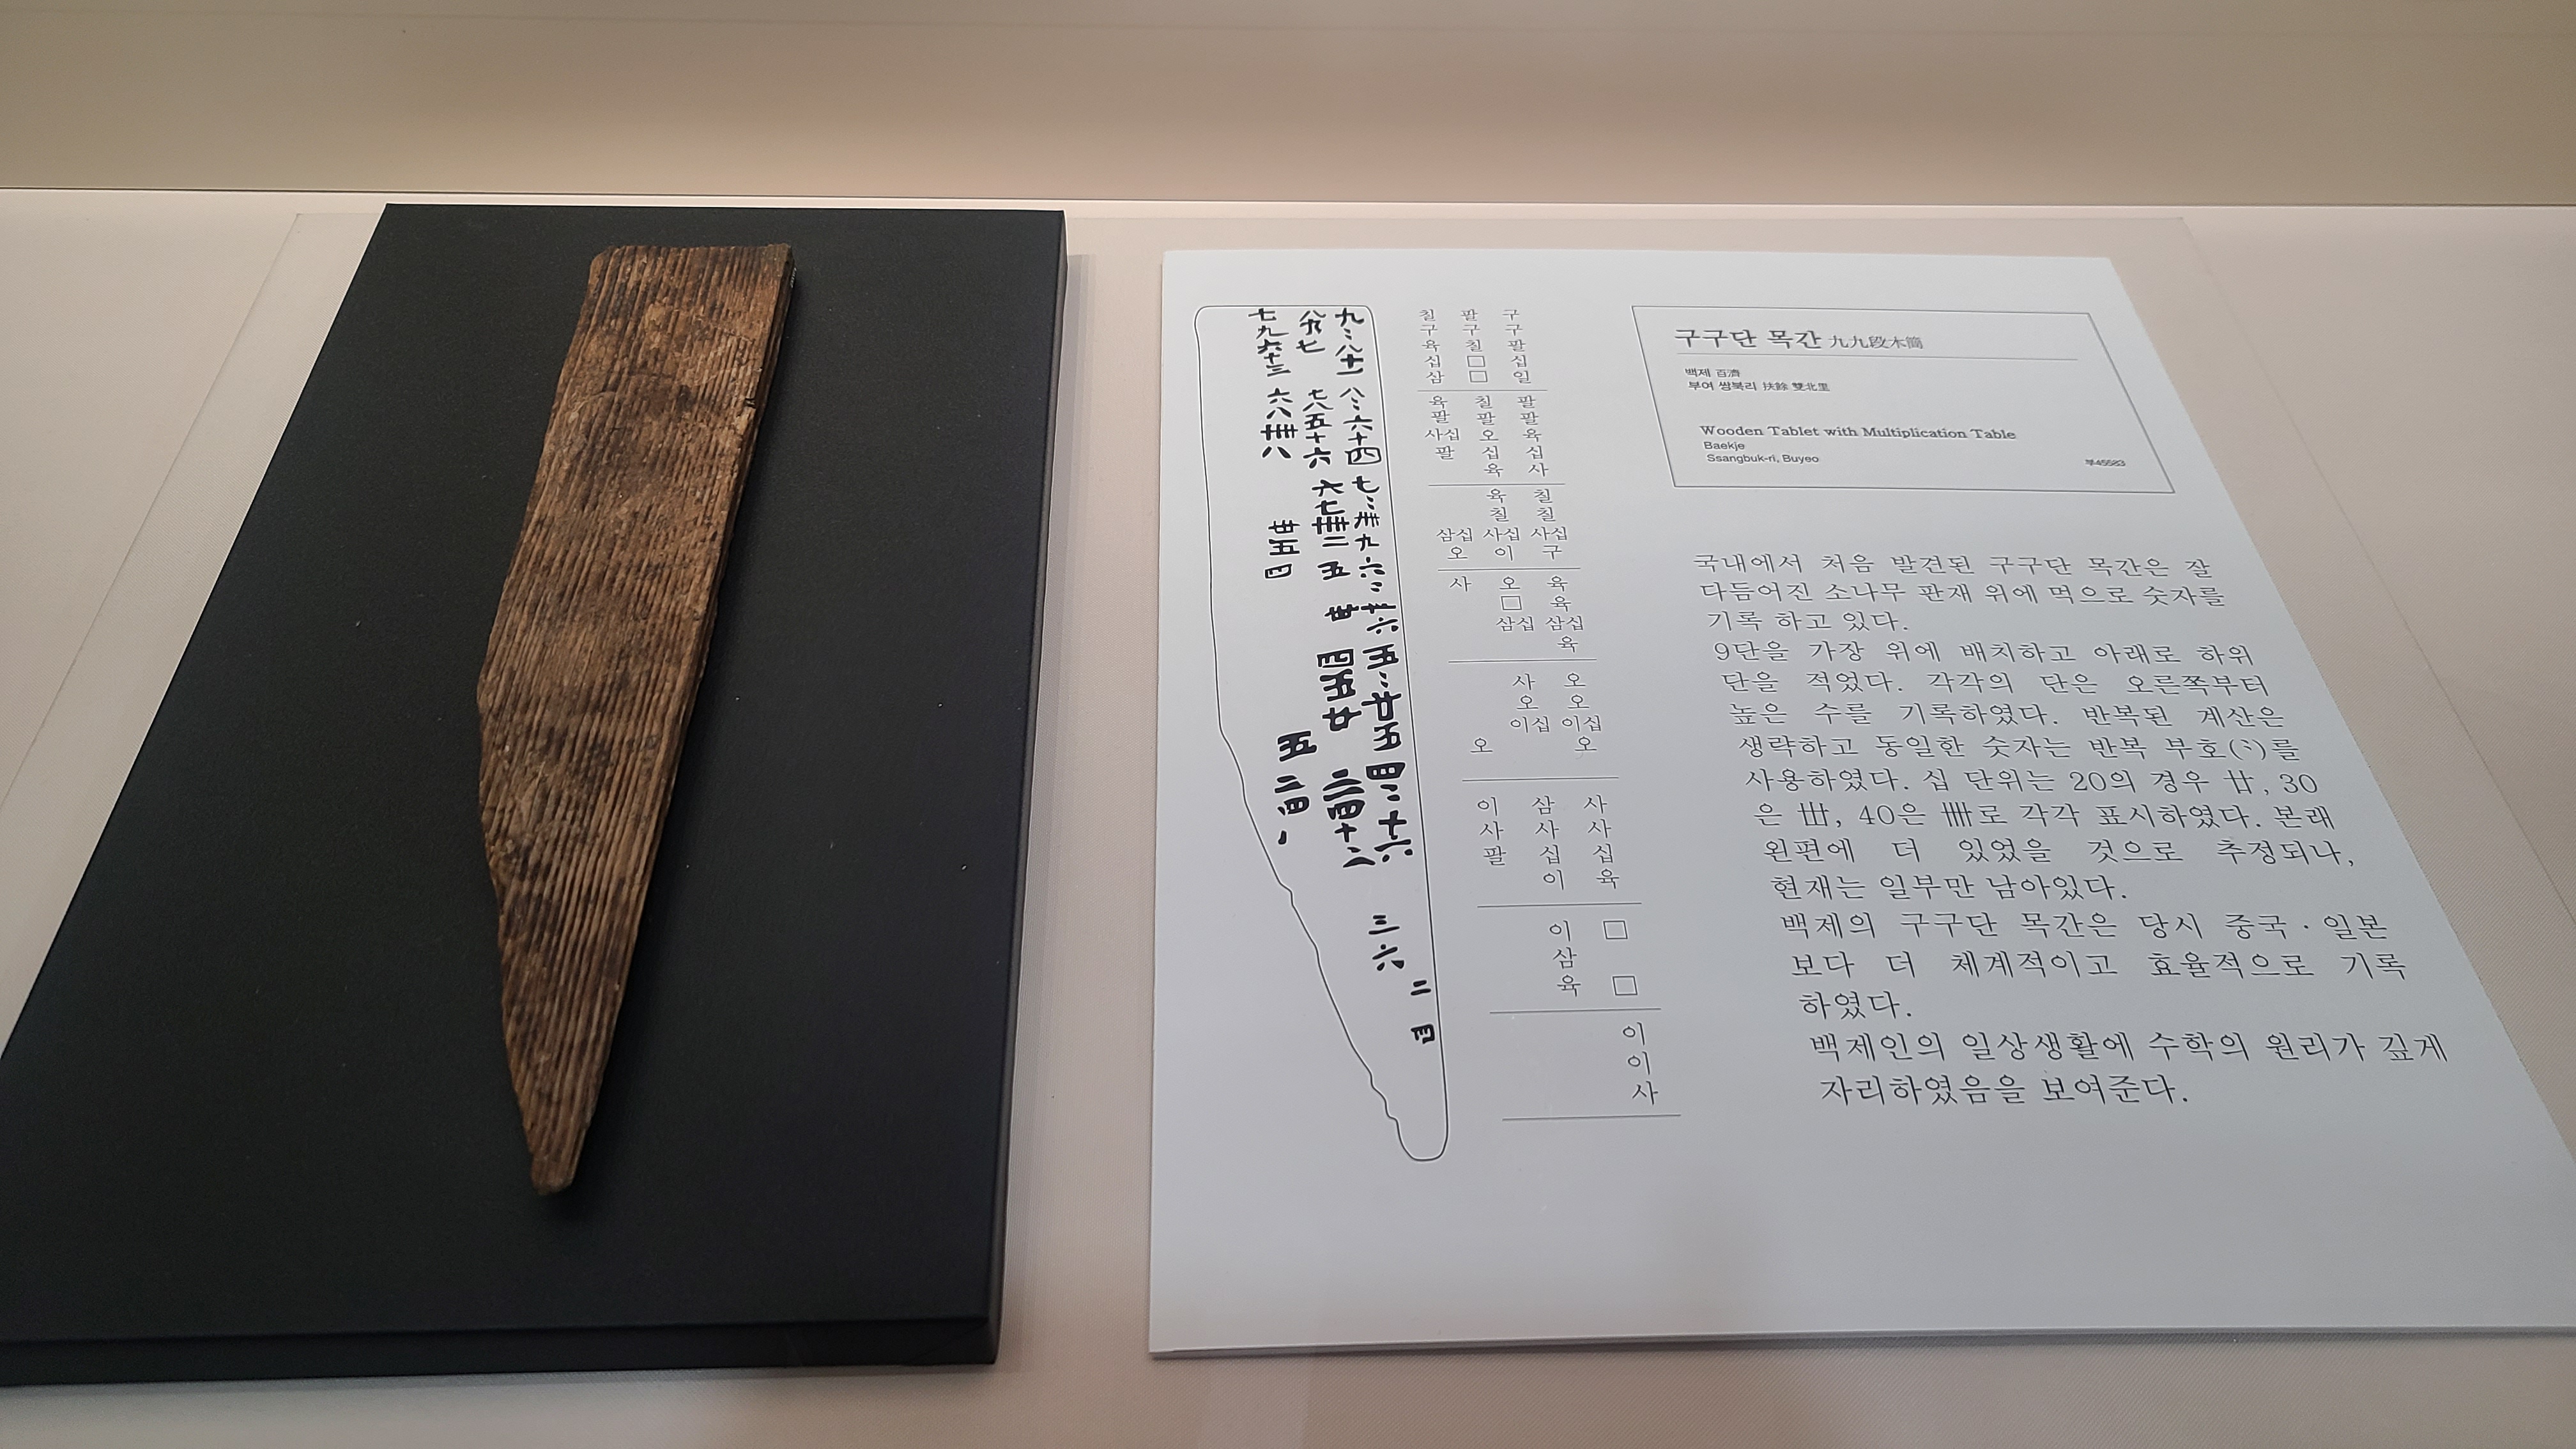 九〻八十一
八九七
七九六十三
八〻六十四
七八五十六
六八卌八
七〻卌九
六七卌二
卅五
六〻卅六
五
卅
四
五〻廿五
四五廿
五
四〻十六
三四十二
二四八
三六
二四
구구팔십일
팔구칠□□
칠구육십삼
팔팔육십사
칠팔오십육
육팔사십팔
칠칠사십구
육칠사십이
삼십오
육육삼십육
오□삼십
사
오오이십오
사오이십
오
사사십육
삼사십이
이사팔
□□
이삼육
이이사
구구단 목간 九九段木簡
백제 百濟
부여 쌍북리 扶餘 雙北里
Wooden Tablet with Multiplication Table
Baekje
Ssangbuk-ri, Buyeo
부45583
국내에서 처음 발견된 구구단 목간은 잘
다듬어진 소나무 판재 위에 먹으로 숫자를
기록 하고 있다.
9단을 가장 위에 배치하고 아래로 하위
단을 적었다. 각각의 단은 오른쪽부터
높은 수를 기록하였다. 반복된 계산은
생략하고 동일한 숫자는 반복 부호(〻)를
사용하였다. 십 단위는 20의 경우 廿, 30
은 卅, 40은 卌로 각각 표시하였다. 본래
왼편에 더 있었을 것으로 추정되나,
현재는 일부만 남아있다.
백제의 구구단 목간은 당시 중국·일본
보다 더 체계적이고 효율적으로 기록
하였다.
백제인의 일상생활에 수학의 원리가 깊게
자리하였음을 보여준다.